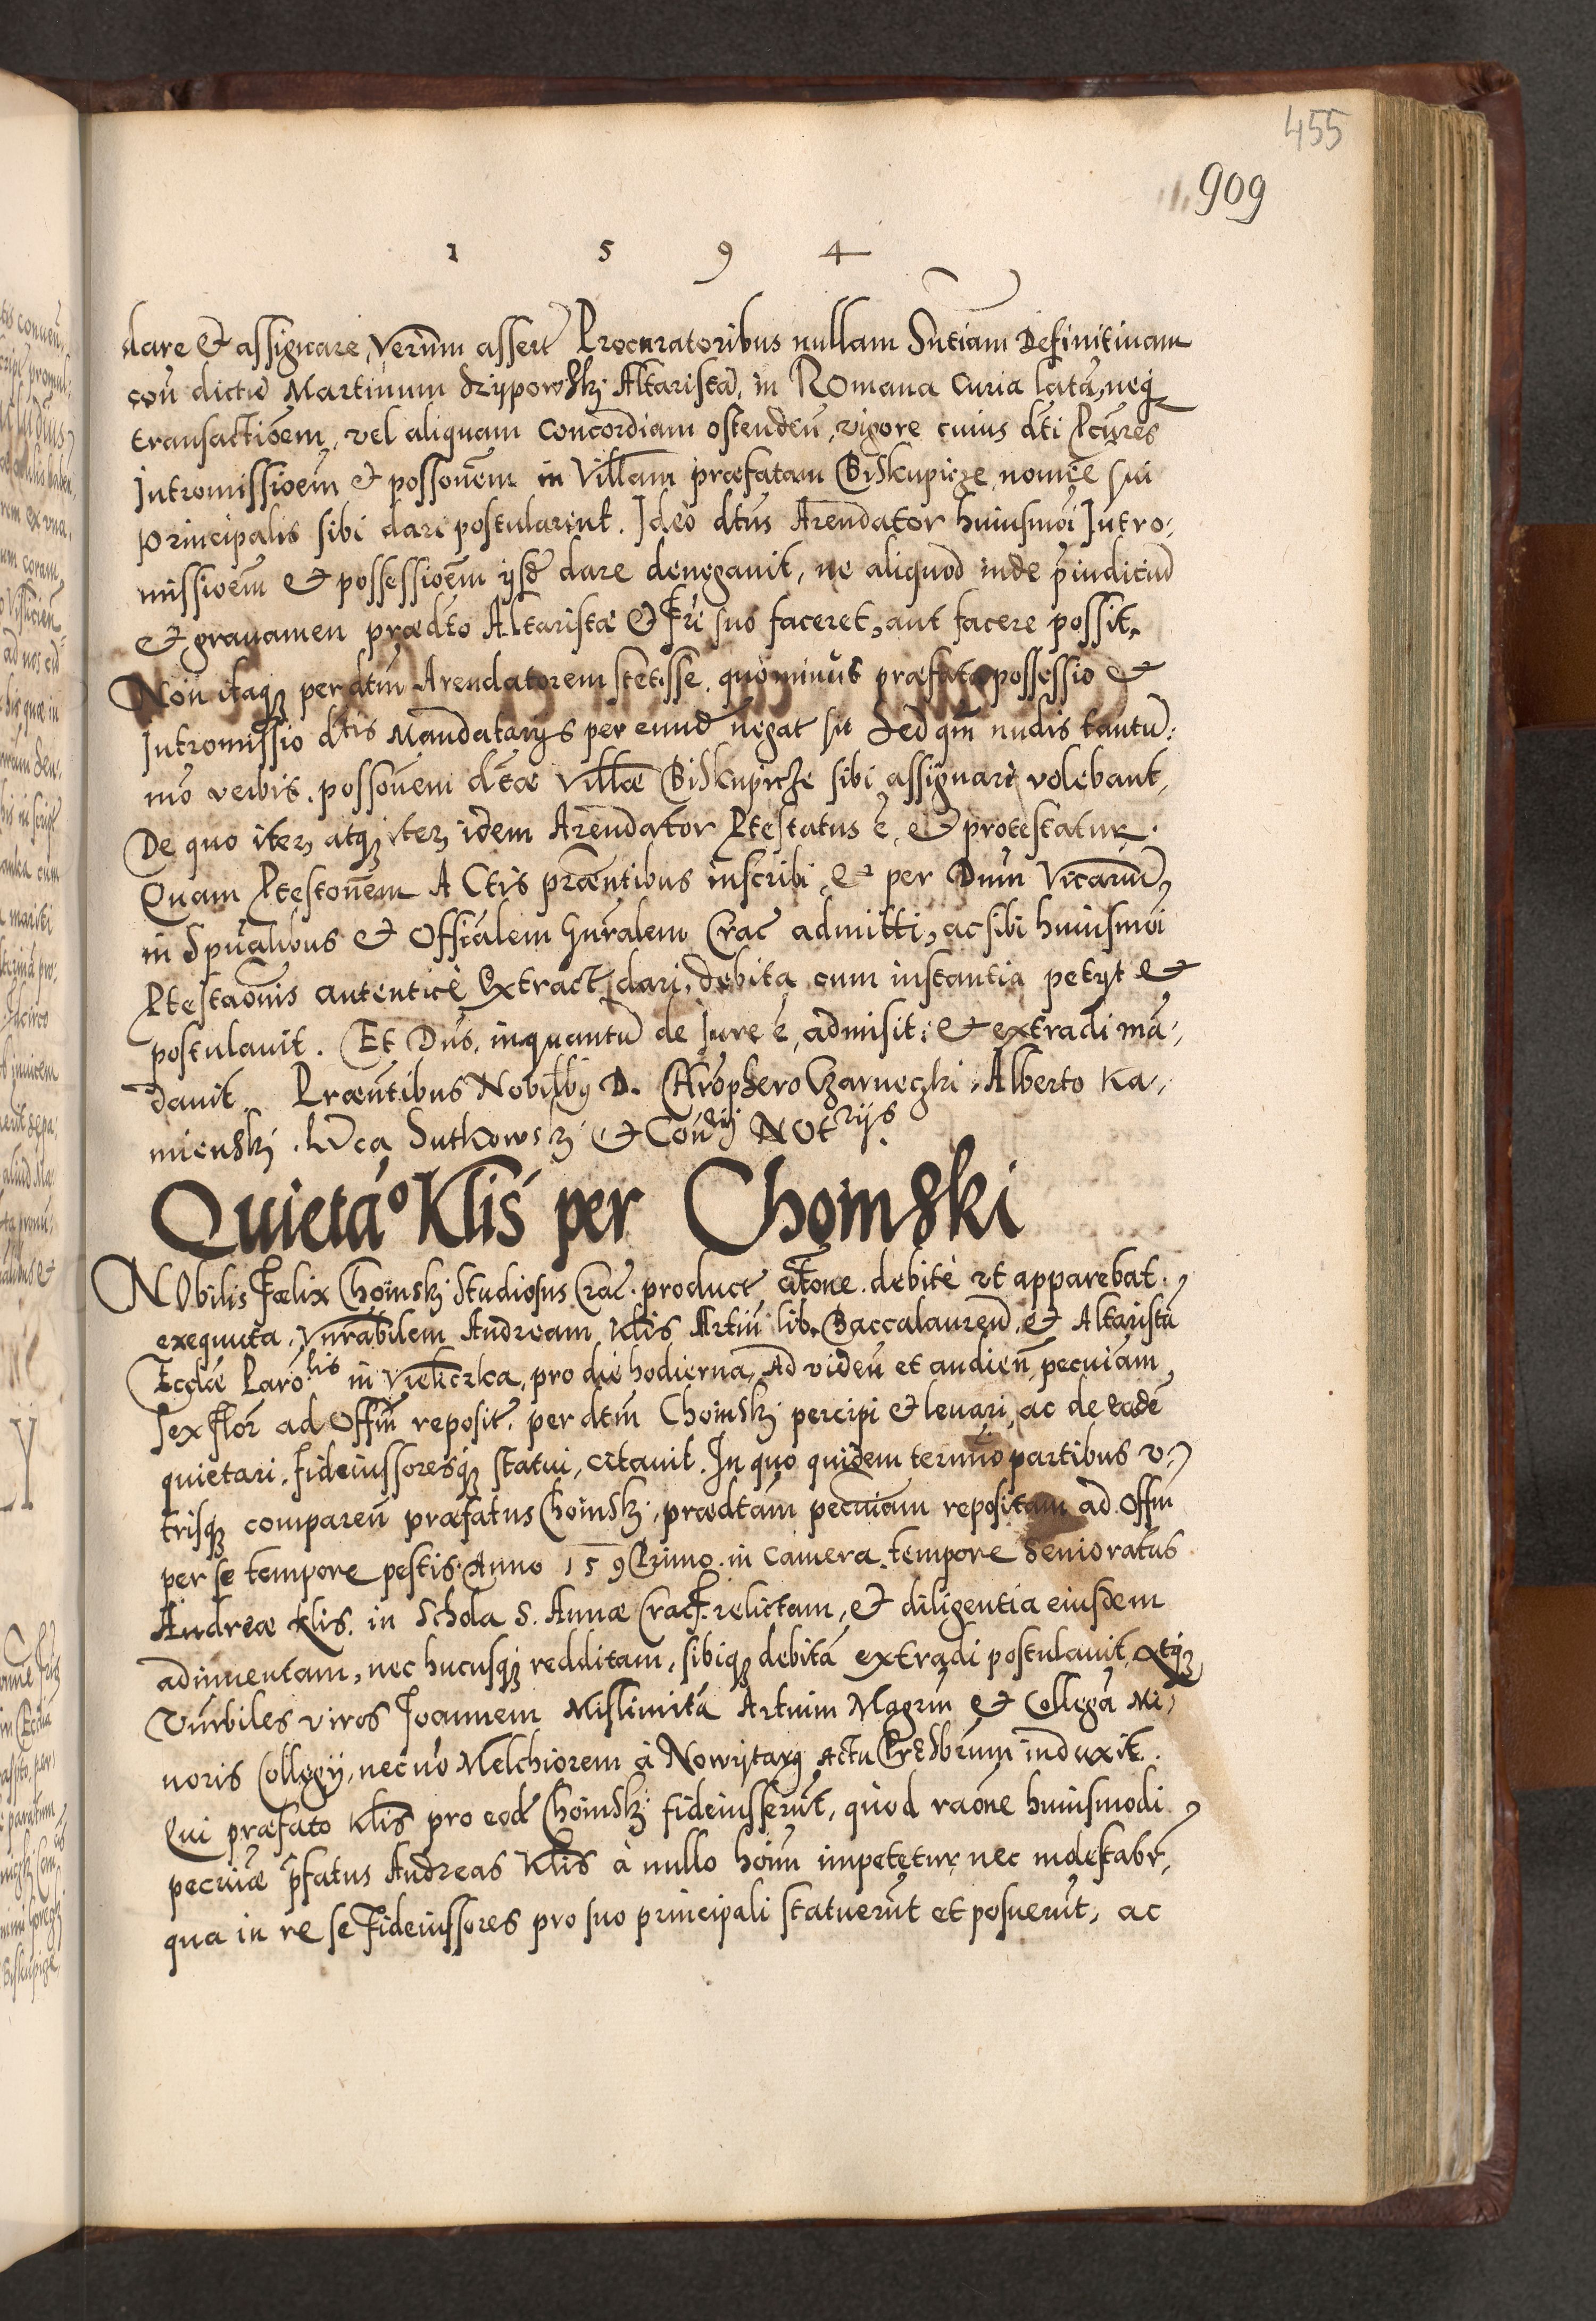 455
909
1 5 9 4
dare et assignare, Verum assert Procuratoribus nullam Sntiam Definitiuam
con dictu Martinum Krypowski Altaristā, in Romana Curia latā, neq
transactioem, vel aliquam concordiam ostendeñ, vigore cuius dti Pcures
Intromissioem et possonem in Villam præfatam Biskupicze nomie sui
principalis sibi dari postularint. Ideo dtus Arendator huiusmoi Intro:
missioem et possessioem ijsd dare denegauit, ne aliquod inde piudiciū
et grauamen prædto Altaristæ et Fri suo faceret, aut facere possit.
Non itaq3 per dtm Arendatorem stetisse, quominus præfata possessio et
Intromissio dtis Mandatarijs per eund negat sit Sed qm nudis tantū:
mo verbis, possonem dtæ Villæ Biskupicze sibi assignari volebant,
De quo iter, atq3 iter, idem Arendator Ptestatus ē, et protestatur.
Quam Ptestonem Actis præntibus inscribi, et per Dnm Vicariū,
in Spualibus et Officialem Gnralem Crac admitti, ac sibi huiusmoi
Ptestaonis autentice Extract dari, debita cum instantia petijt et
postulauit. Et Dns, inquantū de Jure ē, admisit: et extradi mā,
dauit. Præntibus Nobilby D. Chrophero Czarneczki, Alberto Ka,
mienski, Luca Sutkowski et Conrij Notrijs.
Quietaº Klis per Choinski
Nobilis Fœlix Choinski Studiosus Crac. product citaone debite vt apparebat
exequuta, Vnrabilem Andream Klis Artiū lib. Baccalaureū, et Altaristā
Ecclæ Parolis in Vieliczka, pro die hodierna, Ad videñ et audieñ, pecuiam
sex flor ad Offm reposit, per dtm Choinski percipi et leuari, ac de eadē
quietari, fideiussoresq3 statui, citauit. In quo quidem termino partibus v,
trisq3 compareñ præfatus Choinski, prædtam pecuiam repositam ad Offm
per se tempore pestis Anno 159 Primo in camera tempore Senioratus
Andreæ Klis in Schola S. Annæ Crac relictam, et diligentia eiusdem
adinuentam, nec hucusq3 redditam, sibiq3 debitā extradi postulauit, atq3
Vnrbiles viros Joannem Mislimitā Artium Magrm et Collegā Mi,
noris Collegij, nec no Melchiorem à Nowytarg Actu Prsbrum induxit.
Qui præfato Klis pro eod Choinski fideiusserūt, quod raone huiusmodi
pecuiæ pfatus Andreas Klis à nullo hoim impetetur nec molestabr,
qua in re se Fideiussores pro suo principali statuerūt et posuerūt, ac